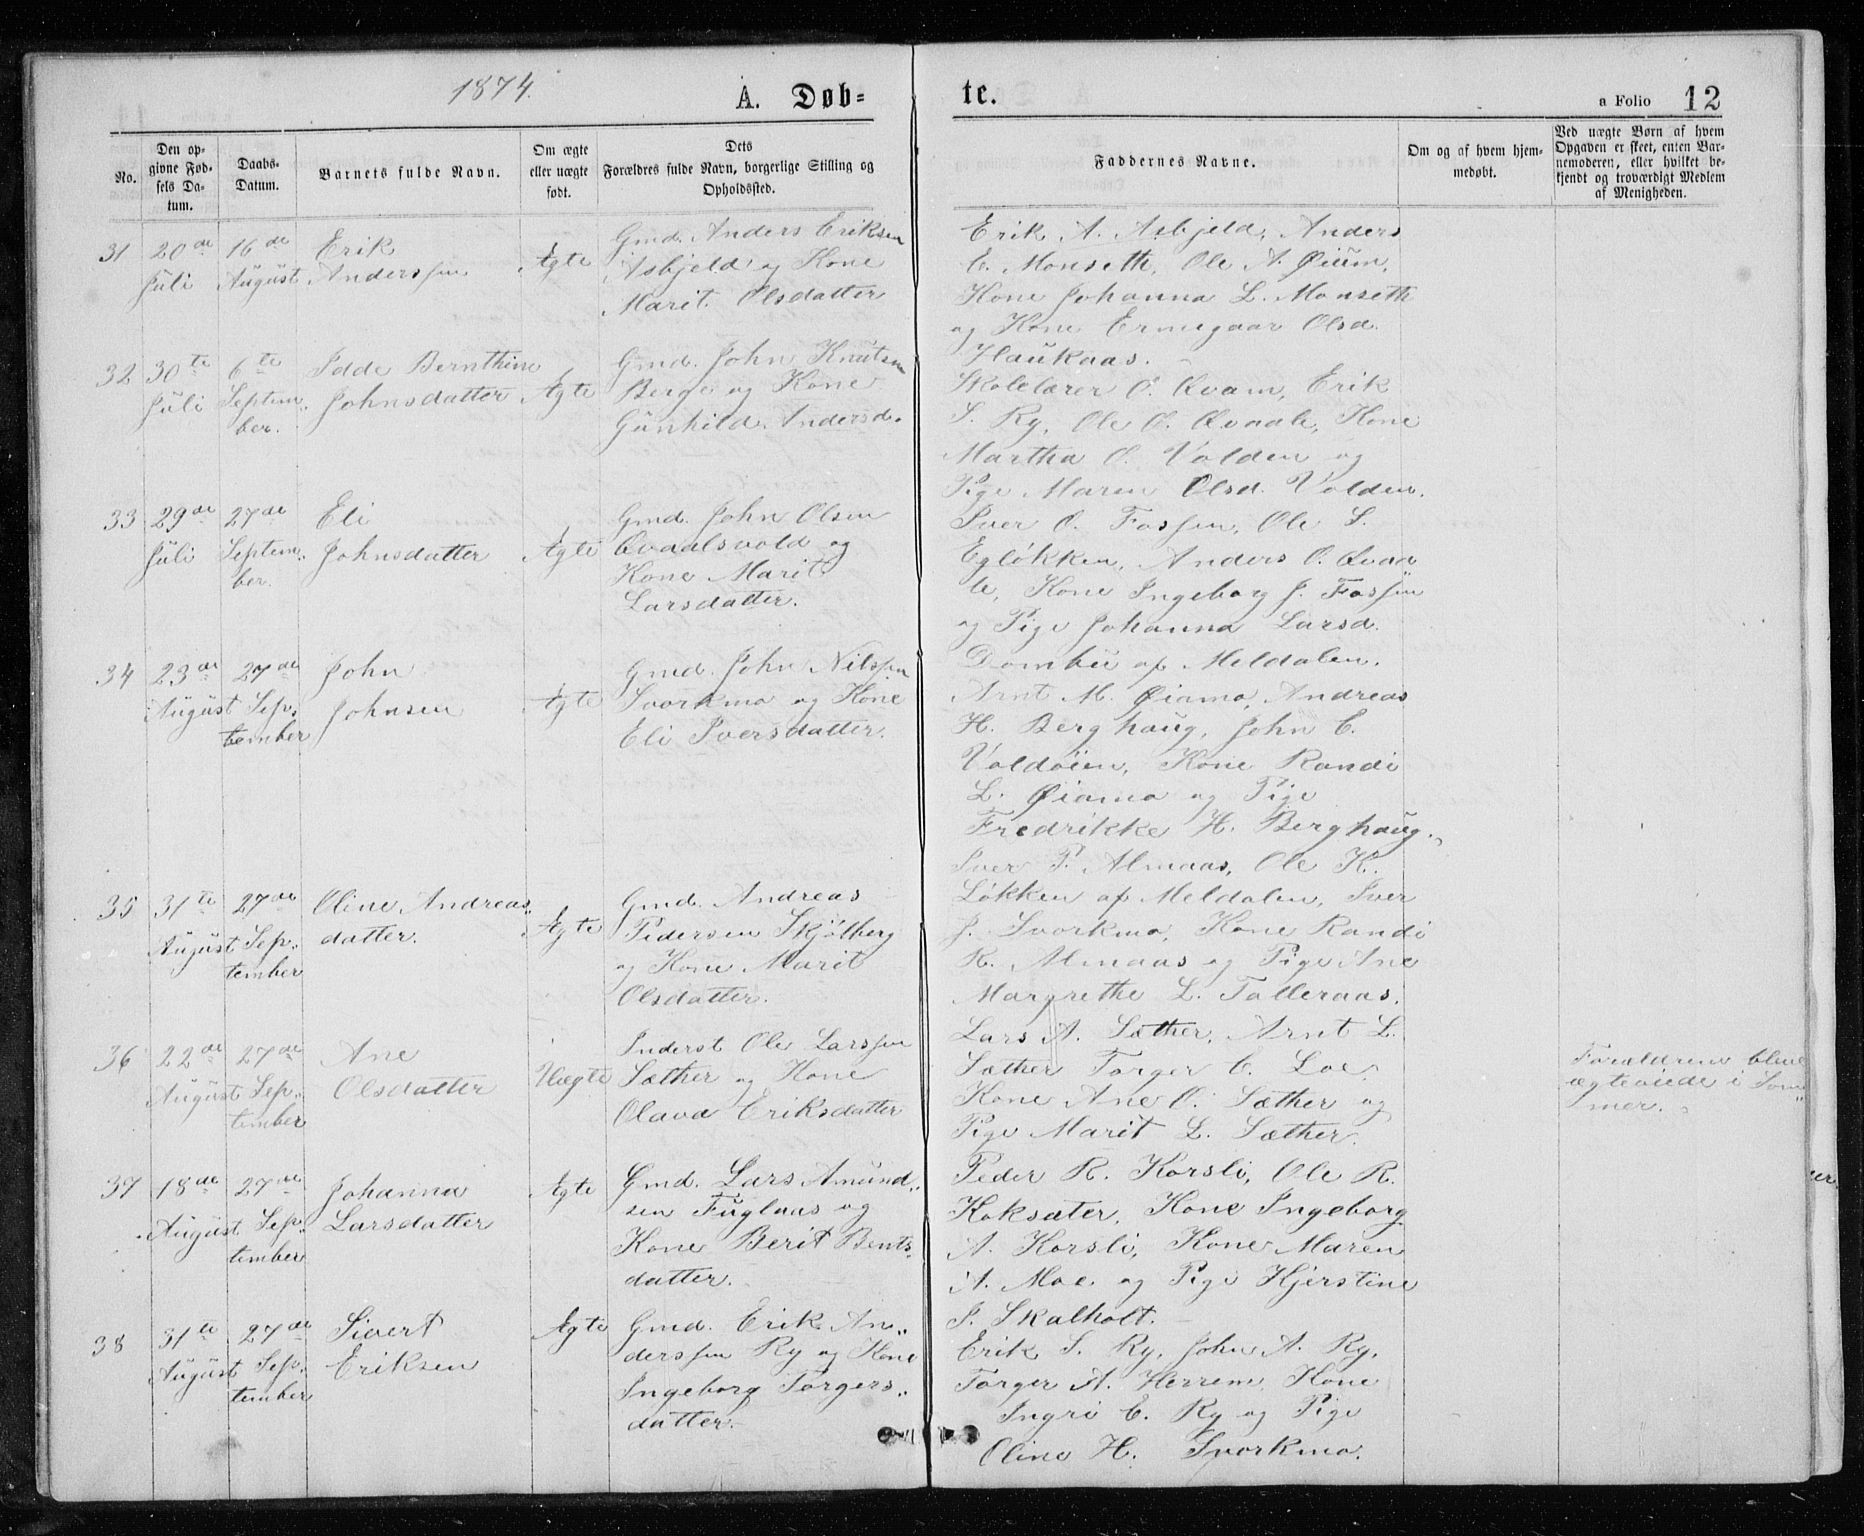 1874.
A. Døb-
te.
a Folio 12
No.
Den op-
givne Fød-
sels Da-
tum.
Daabs-
Datum.
Barnets fulde Navn.
Om ægte
eller uægte
født.
Dets
Forældres fulde Navn, borgerlige Stilling og
Opholdssted.
Faddernes Navne.
Om og af hvem hjem-
medøbt.
Ved uægte Børn af hvem
Opgaven er skeet, enten Bar-
nemoderen, eller hvilket be-
kjendt og troværdigt Medlem
af Menigheden.
31
20de
Juli
16de
August
Erik
Anderssen
Ægte
Gmd. Anders Eriksen
Asbjeld og Kone
Marit Olsdatter
Erik A. Asbjeld, Anders
E. Monseth, Ole A. Øium,
Kone Johanna L. Monseth
og Kone Ermegaar Olsd.
Haukaas.
32
30te
Juli
6te
Septem-
ber.
Idde Bernthine
Johnsdatter
Ægte
Gmd. John Knutsen
Berge og Kone
Gunhild Andersd.
Skolelærer O. Qvam, Erik
S. Ry, Ole O. Qvaale, Kone
Martha O. Volden og
Pige Maren Olsd. Volden.
33
29de
Juli
27de
Septem-
ber.
Eli
Johnsdatter
Ægte
Gmd. John Olsen
Qvaalsvold og
Kone Marit
Larsdatter.
Iver O. Fossen, Ole S.
Egløkken, Anders O. Qvaa
le, Kone Ingeborg J. Fossen
og Pige Johanna Larsd.
Dombu af Meldalen.
34
23de
August
27de
Sep-
tember
John
Johnsen
Ægte
Gmd. John Nilssen
Svorkmo og Kone
Eli Iversdatter.
Arnt M. Øiamo, Andreas
H. Berghaug, John E.
Voldøien, Kone Randi
L. Øiamo og Pige
Fredrikke H. Berghaug.
35
31te
August
27de
Sep-
tember
Oline Andreas-
datter.
Ægte
Gmd. Andreas
Pedersen Skjølberg
og Kone Marit
Olsdatter.
Iver P. Almaas, Ole K.
Løkken af Meldalen, Iver
J. Svorkmo, Kone Randi
R. Almaas og Pige Ane
Margrethe L. Talleraas.
36
22de
August
27de
Sep-
tember
Ane
Olsdatter
Uægte
Inderst Ole Larssen
Sæther og Kone
Olava Eriksdatter
Lars A. Sæther, Arnt L.
Sæther Torger E. Loe.
Kone Ane O. Sæther og
Pige Marit L. Sæther.
Forældrene bleve
ægteviede i Som-
mer.
37
18de
August
27de
Sep-
tember
Johanna
Larsdatter
Ægte
Gmd. Lars Amund-
sen Fuglaas og
Kone Berit Bents-
datter.
Peder R. Korsli, Ole R.
Koksæter, Kone Ingeborg
A. Korsli, Kone Maren
A. Moe og Pige Kjerstine
J. Skalholt.
38
31te
August
27de
Sep-
tember
Sivert
Eriksen
Ægte
Gmd. Erik An-
derssen Ry og Kone
Ingeborg Torgers-
datter.
Erik S. Ry, John A. Ry,
Torger A. Herrem, Kone
Ingri E. Ry og Pige
Oline H. Svorkmo.